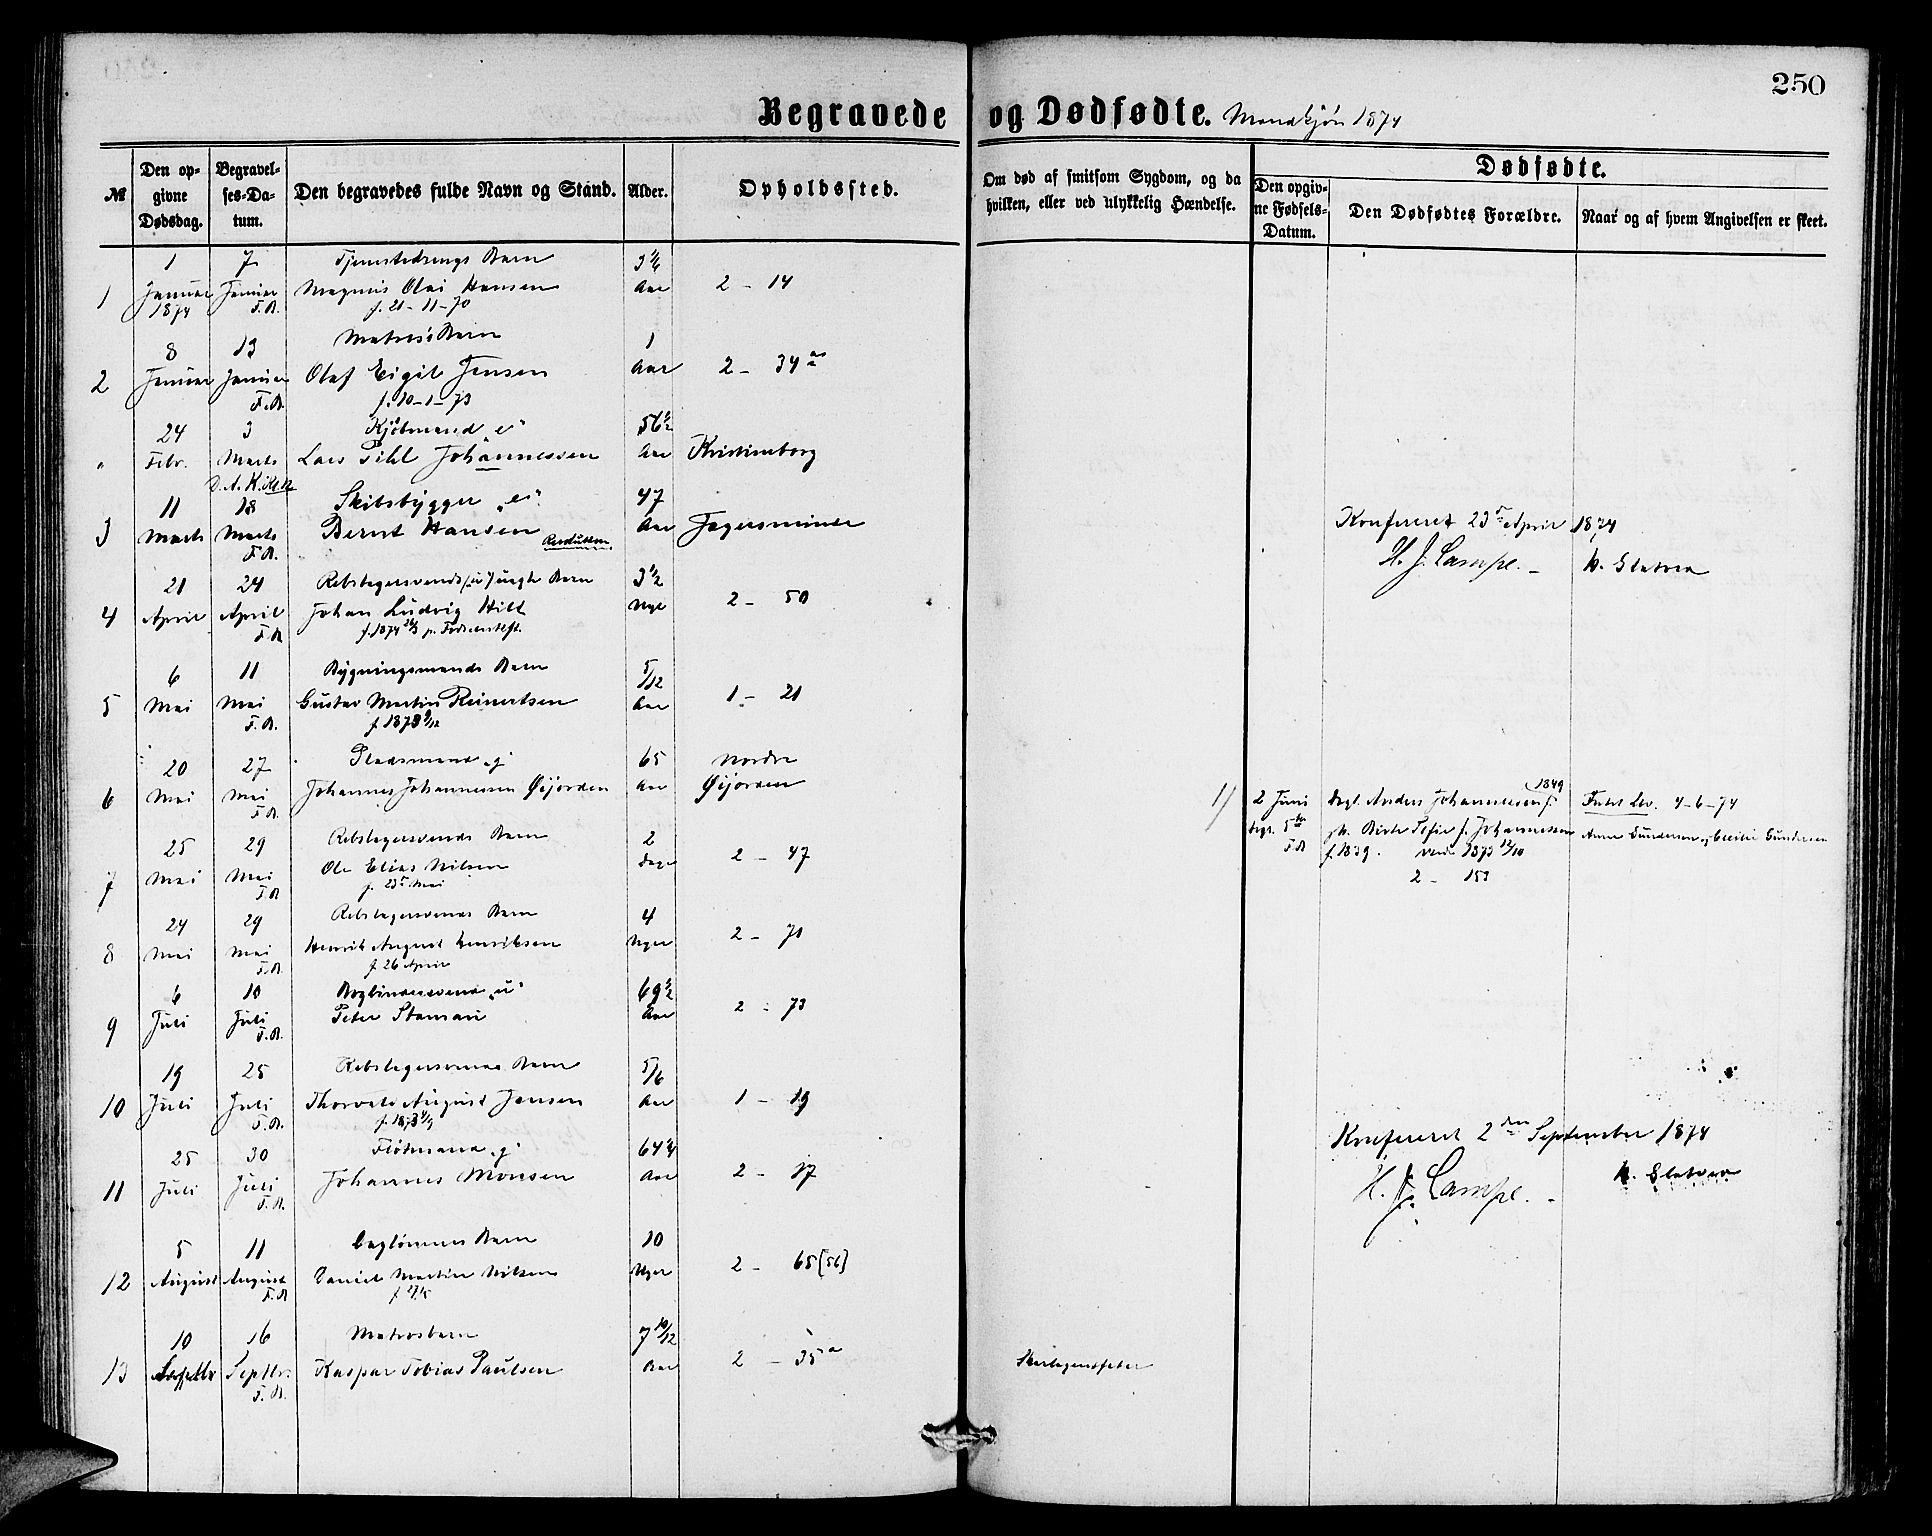 250
Begravede og Dødfødte. Mandkjøn 1874
№
Den opgivne Dødsdag.
Begravelses-Datum.
Den begravedes fulde Navn og Stand.
Alder.
Opholdssted.
Om død af smitsom Sygdom, og da hvilken, eller ved ulykkelig Hændelse.
Dødfødte.
Den opgivne Fødsels-Datum.
Den Dødfødtes Forældre.
Naar og af hvem Angivelsen er skeet.
1 7 Barn 3 1/4
1 Januar Januar Magnus Olai Hansen Aar 2 - 14
1874 F.B. f. 21-11-70
8 13 Matros Barn 1
2 Januar Januar Olaf Eigil Jensen Aar 2 - 34 a
F.B. f. 10-1-73
24 3 Kjøbmand "e" 56 1/2
" Febr. Marts Lars Pihl Johannessen Aar Kristinborg
11 18 Skibsbygger "e" 47
3 Marts Marts Bernt Hansen Aar
F.B.
21 24 Barn 3 1/2
4 April April Johan Ludvig Hilt Uger 2 - 50
F.B. f. 1874
6 11 Bygningsmands Barn 5/12
5 Mai Mai Gustav Martin Reinertsen Aar 1 - 21
F.B. f. 1873 9/12
20 27 Pladsmand "g" 65 Nordre
6 Mai Mai Johannes Johannessen Øijorden Aar Øijorden
F.B.
25 29 Rebslagersvends Barn 2
7 Mai Mai Ole Elias Nilsen Dage 2 - 47
F.B. f. 23 Mai
24 29 Rebslagersvends Barn 4
8 Mai Mai Henrik August Henriksen Uger 2 - 70
F.B. f. 26 April
6 10 Bogbindersvend "u" 69 1/2
9 Juli Juli Peter Aar 2 - 73
F.B.
19 25 Rebslagersvends Barn 5/6
10 Juli Juli Thorvald August Jensen Aar 1 - 19
F.B. f. 1873
25 30 Fløtmand "g" 64 1/4
11 Juli Juli Johannes Monsen Aar 2 - 17
F.B.
5 11 Barn 10
12 August August Daniel Martin Nilsen Uger 2 - 65 [56]
F.B.
10 16 Matrosbarn 7 10/12
13 Septbr. Septbr. Kaspar Tobias Paulsen Aar 2 - 35 a Skarlagensfeber
F.B.
Konfereret 23 April 1874
H. J. Lampe.
1) 2 Juni Anders Johannessen f. 1849
5 Johannessen Anne Gundersen og Cecilie Gundersen
F.B. f. 1839. 1873 12/10
4-6-74
2 - 153
Konfereret 2 den September 1874
H. J. Lampe.